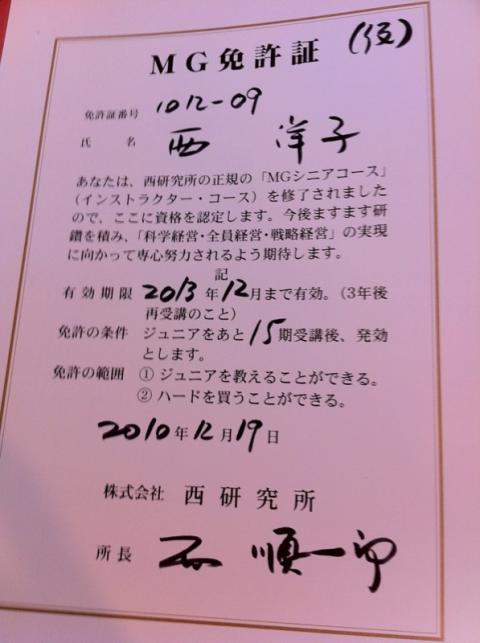 MG免許証 (仮)
免許証番号 1012-09
氏 名 西 洋子
あなたは、西研究所の正規の「MGシニアコース」
(インストラクター・コース)を修了されました
ので、ここに資格を認定します。今後ますます研
鑽を積み、「科学経営・全員経営・戦略経営」の実現
に向かって専心努力されるよう期待します。
記
有効期限 2013年12月まで有効。(3年後
再受講のこと)
免許の条件 ジュニアをあと15期受講後、発効
とします。
免許の範囲 ① ジュニアを教えることができる。
② ハードを買うことができる。
2010年12月19日
株式会社 西研究所
所長 西 順一郎